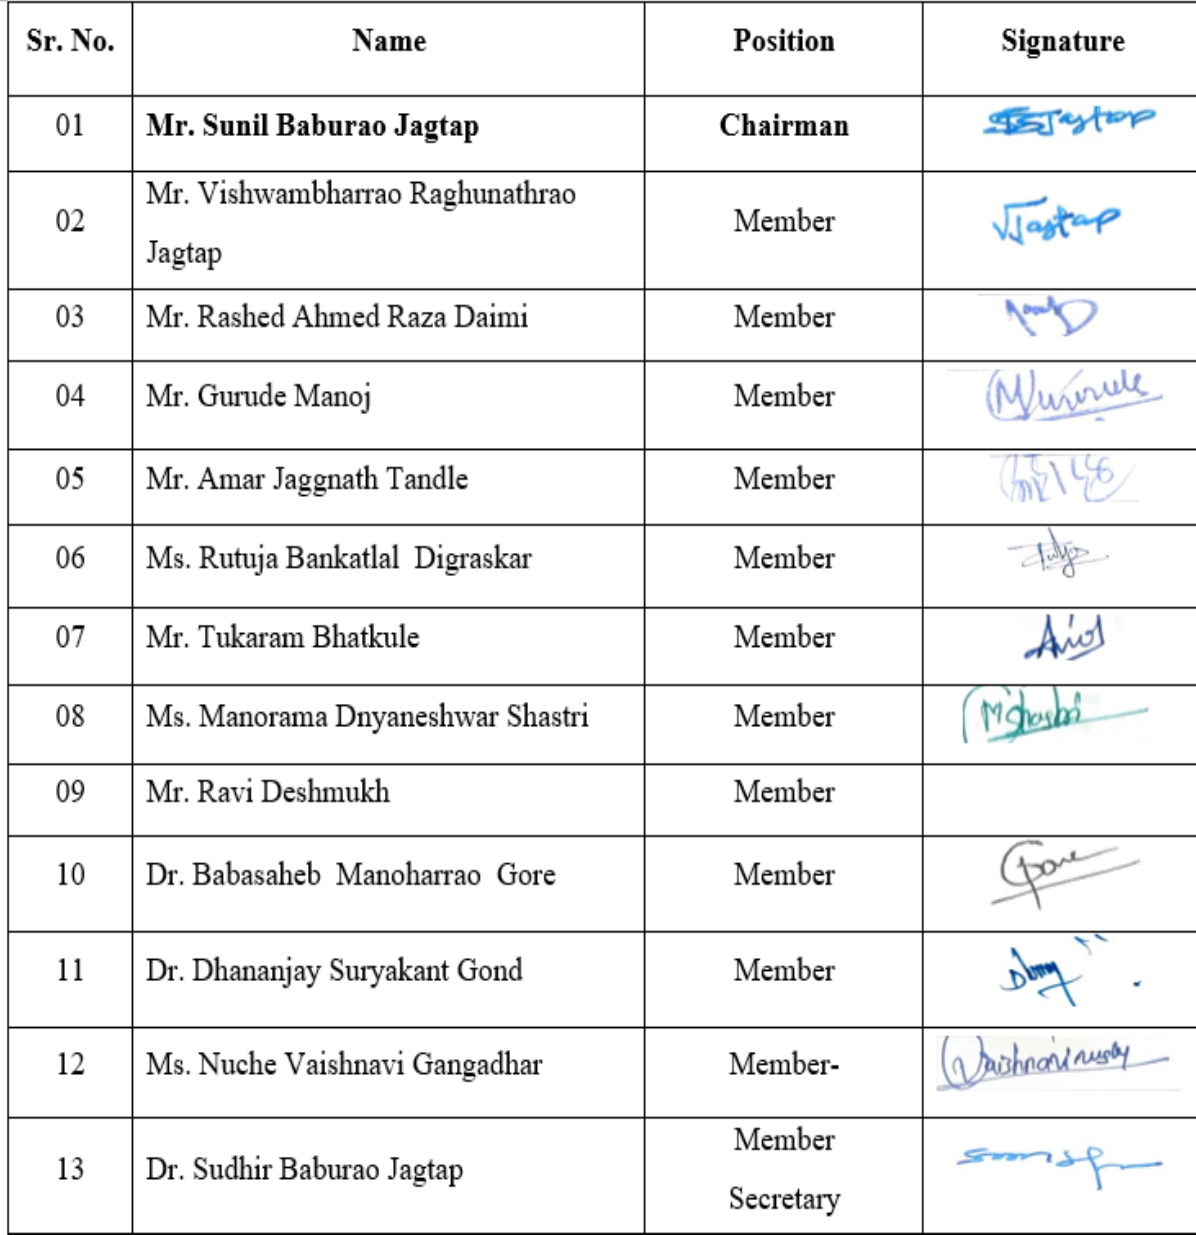 Sr. No. Name Position Signature
01 Mr. Sunil Baburao Jagtap Chairman SJagtap
Mr. Vishwambharrao Raghunathrao
02 Member VJagtap
Jagtap
03 Mr. Rashed Ahmed Raza Daimi Member
04 Mr. Gurude Manoj Member
05 Mr. Amar Jaggnath Tandle Member
06 Ms. Rutuja Bankatlal Digraskar Member
07 Mr. Tukaram Bhatkule Member
08 Ms. Manorama Dnyaneshwar Shastri Member MShastri
09 Mr. Ravi Deshmukh Member
10 Dr. Babasaheb Manoharrao Gore Member Gore
11 Dr. Dhananjay Suryakant Gond Member
12 Ms. Nuche Vaishnavi Gangadhar Member- Vaishnavi
Member
13 Dr. Sudhir Baburao Jagtap
Secretary